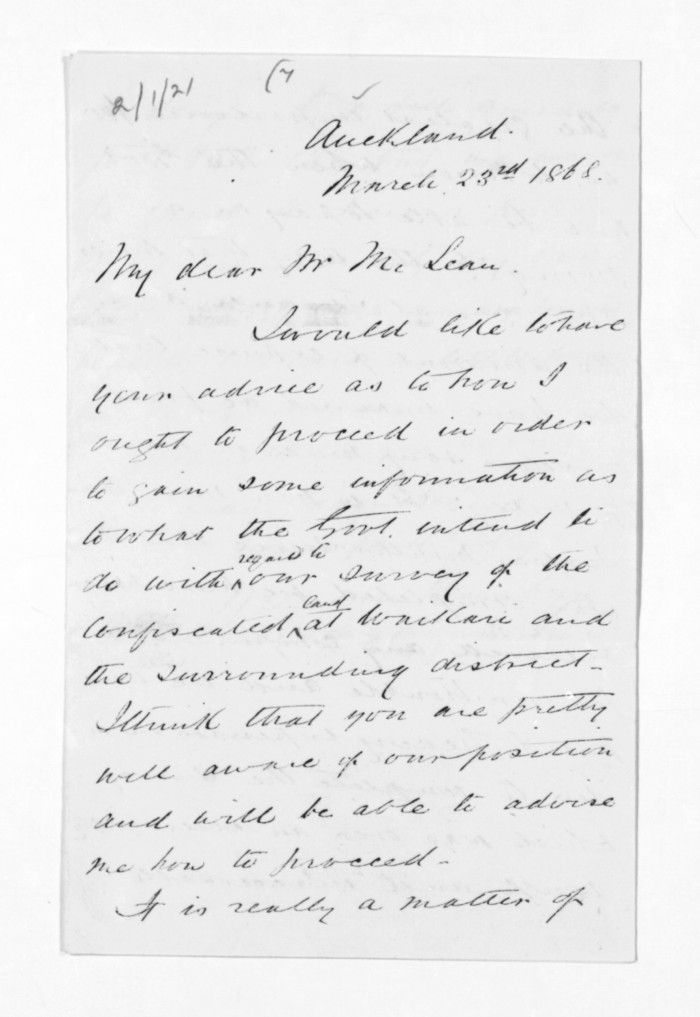 2/1/21
(7
Auckland.
March 23rd 1868.
My dear Mr McLean.
I would like to have
your advice as to how I
ought to proceed in order
to gain some information as
to what the Govt. intend to
regard to
do with our survey of the
land
confiscated at Waikare and
the surrounding district-
I think that you are pretty
well aware of our position
and will be able to advise
me how to proceed-
It is really a matter of